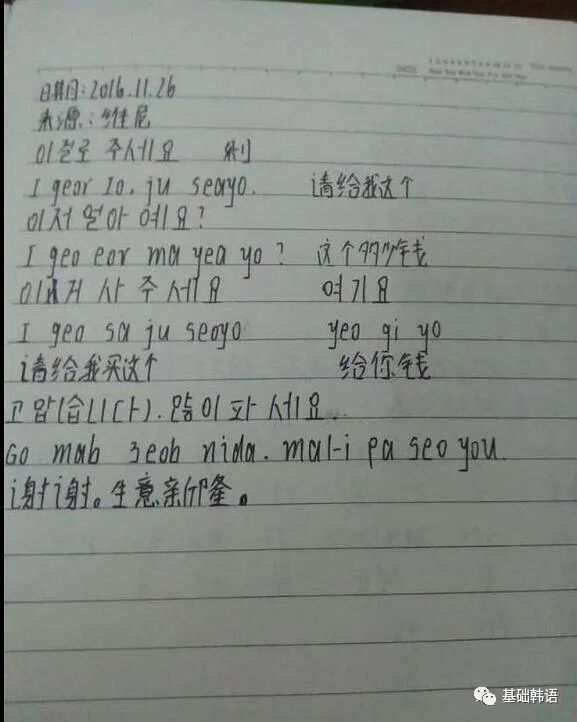 日期:2016.11.26
来源:维尼
이걸로 주세요
I geor Io, ju seayo. 请给我这个
이저 얼아 예요?
I geo eor ma yea yo? 这个多少钱
이거 사 주 세요 여기요
I geo sa ju seoyo yeo gi yo
请给我买这个 给你钱
고맙(습니다). 많이파 세요.
Go mab seob nida. mal-i pa seo you.
谢谢。生意亲你隆。
基础韩语